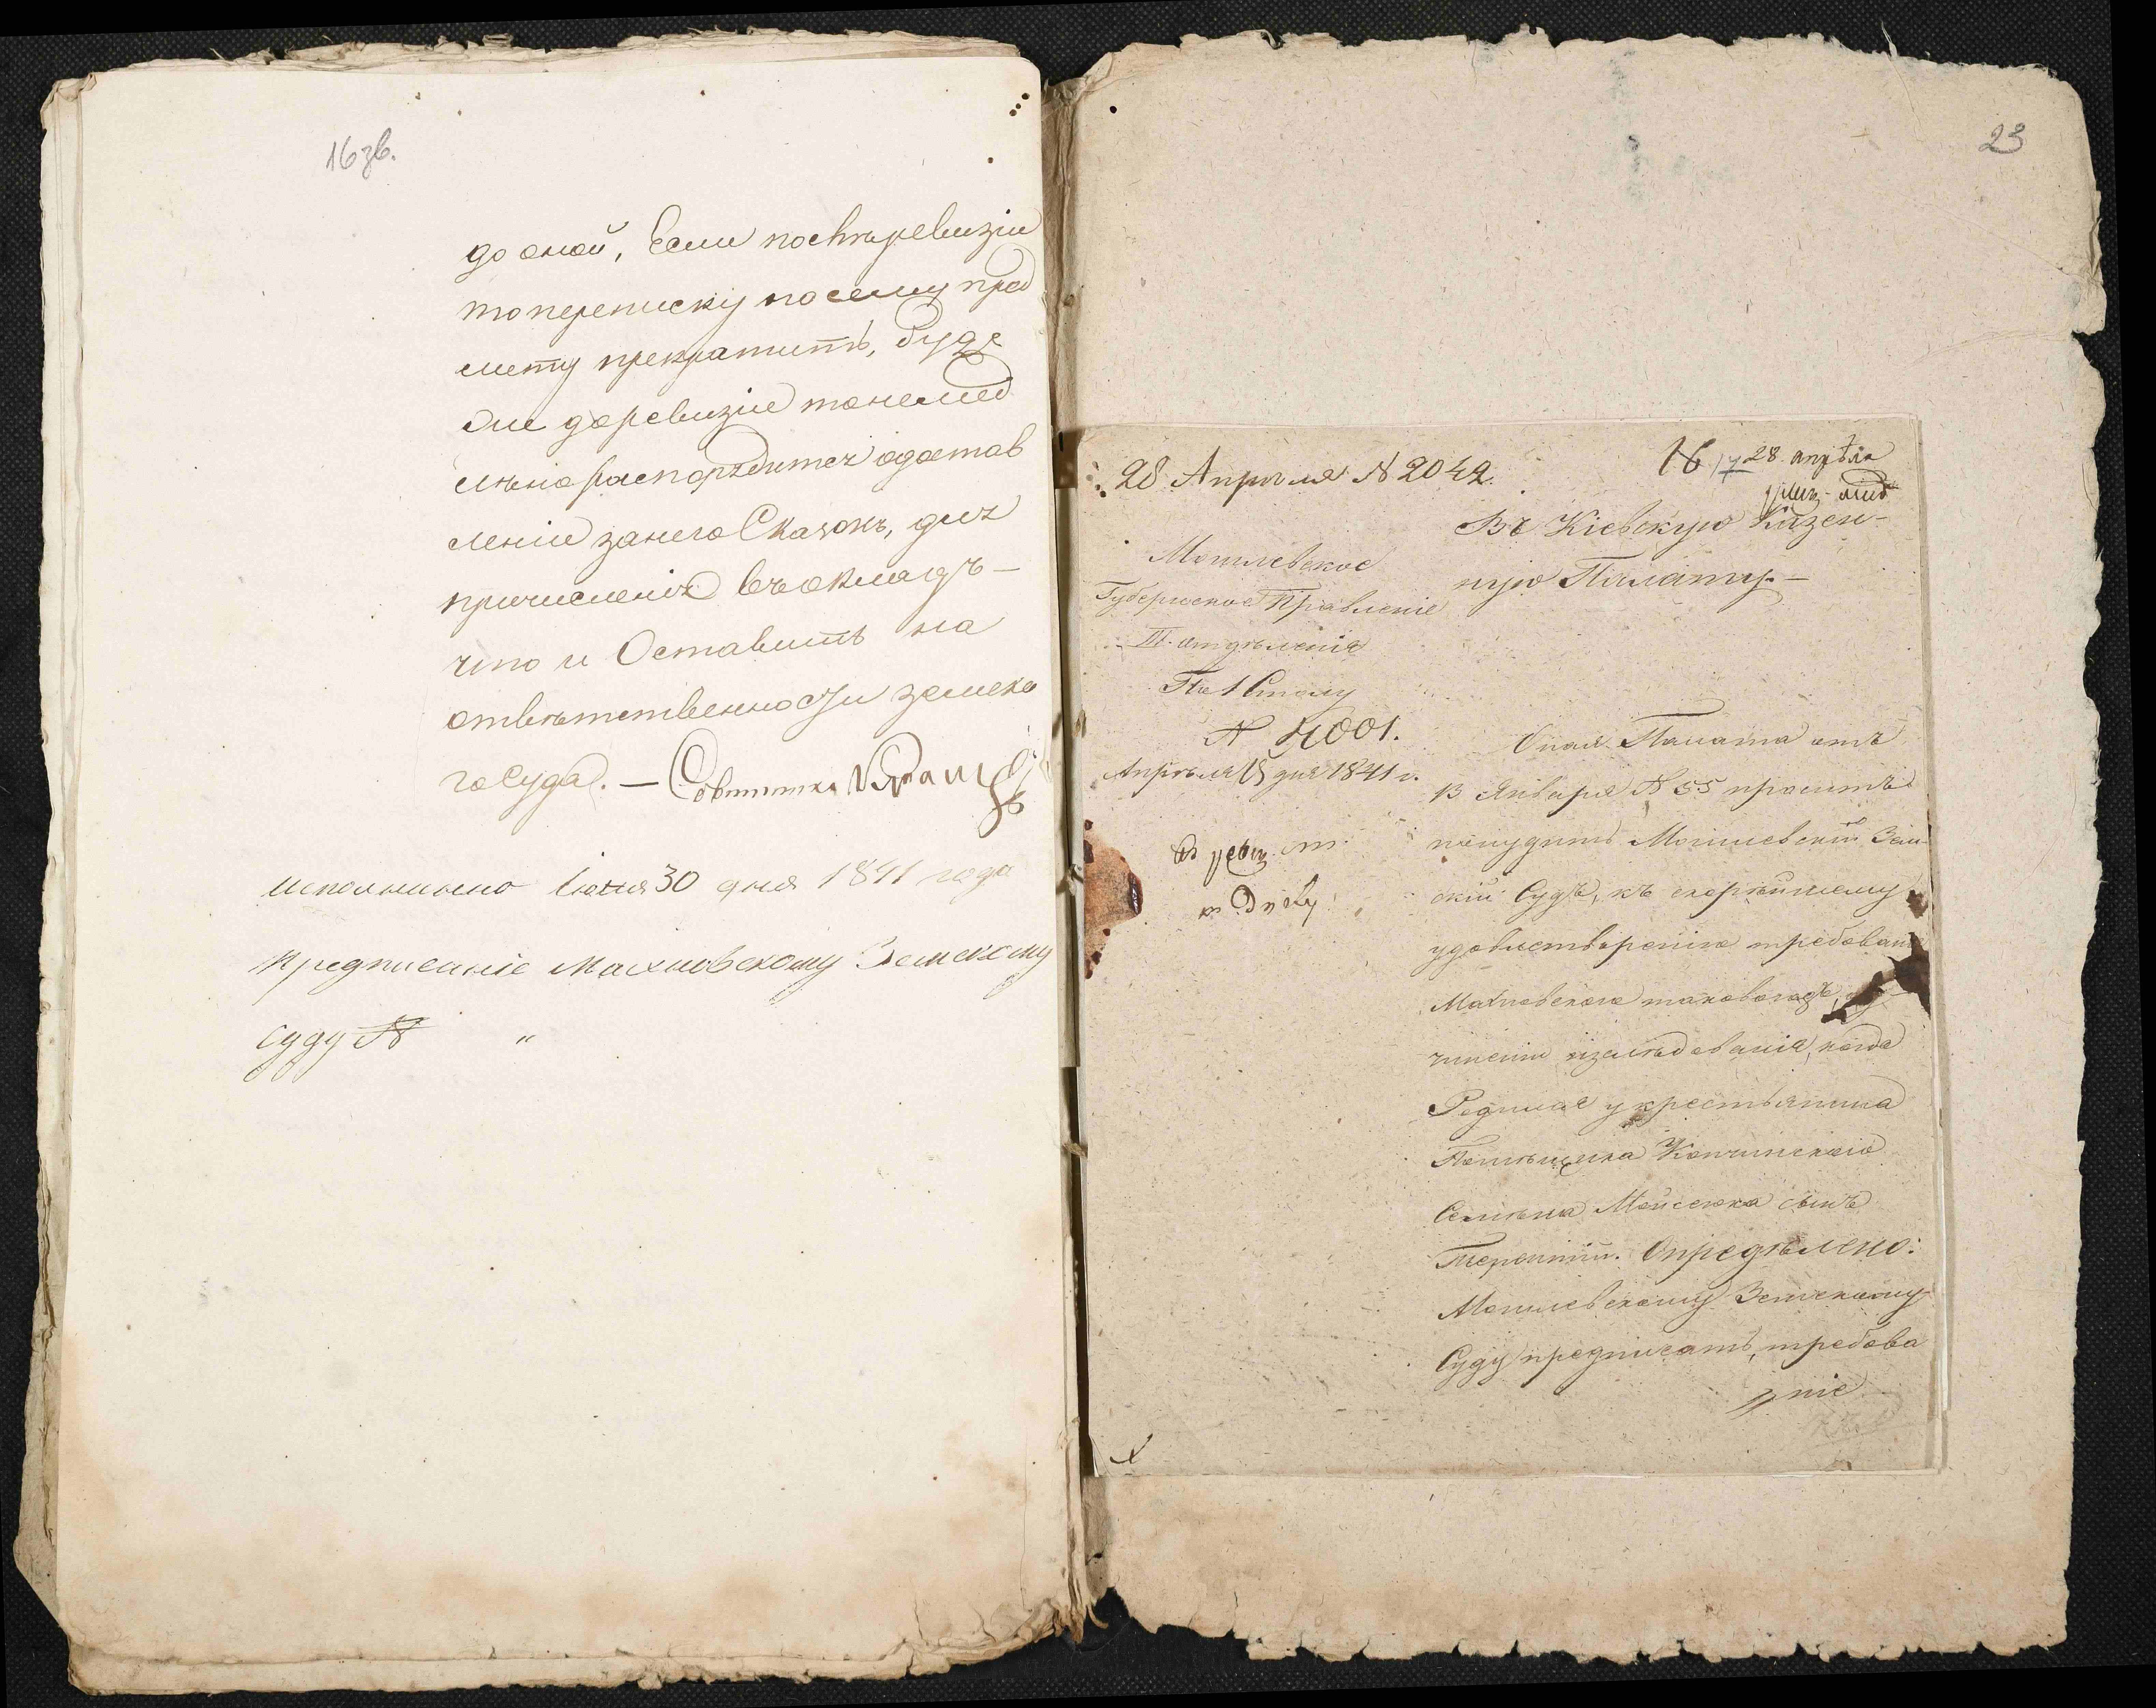 16 зв.
до оной, Если послъ ревизіи
то переписку по сему пред
мету прекратить, буде
же до ревизіи то немед
лѣнно распорядится о достав
леніи за него Сказокъ, для
причисленія въ окладъ —
что и Оставить на
отвѣтственности земска
го Суда. — Совѣтникъ
исполнинно Іюня 30 дня 1841 года
предписаніе Махновскому Земскому
суду №   "
23
28 Апрѣля № 2042.
16 17 28 апрѣля
Въ Кіевскую Казен-
ную Палату. —
Могилевское
Губернское Правленіе
III. отдѣленія
По 1 Столу
№ 4001.
Апрѣля 15 дня 1841 г.
въ ревиз. от.
Оная Палата отъ
13 Января № 55 проситъ
понудить Могилевскій Зем
скій Судъ, къ скорѣйшему
удовлетворенію требован
Махновского таковогожъ,
чиненіи изслѣдованія, когда
Родился у крестьянина
Помѣщика
Семіона Мойсеюка сынъ
Терентій. Опредѣлено:
Могилевскому Земскому
Суду предписать, требова
ніе